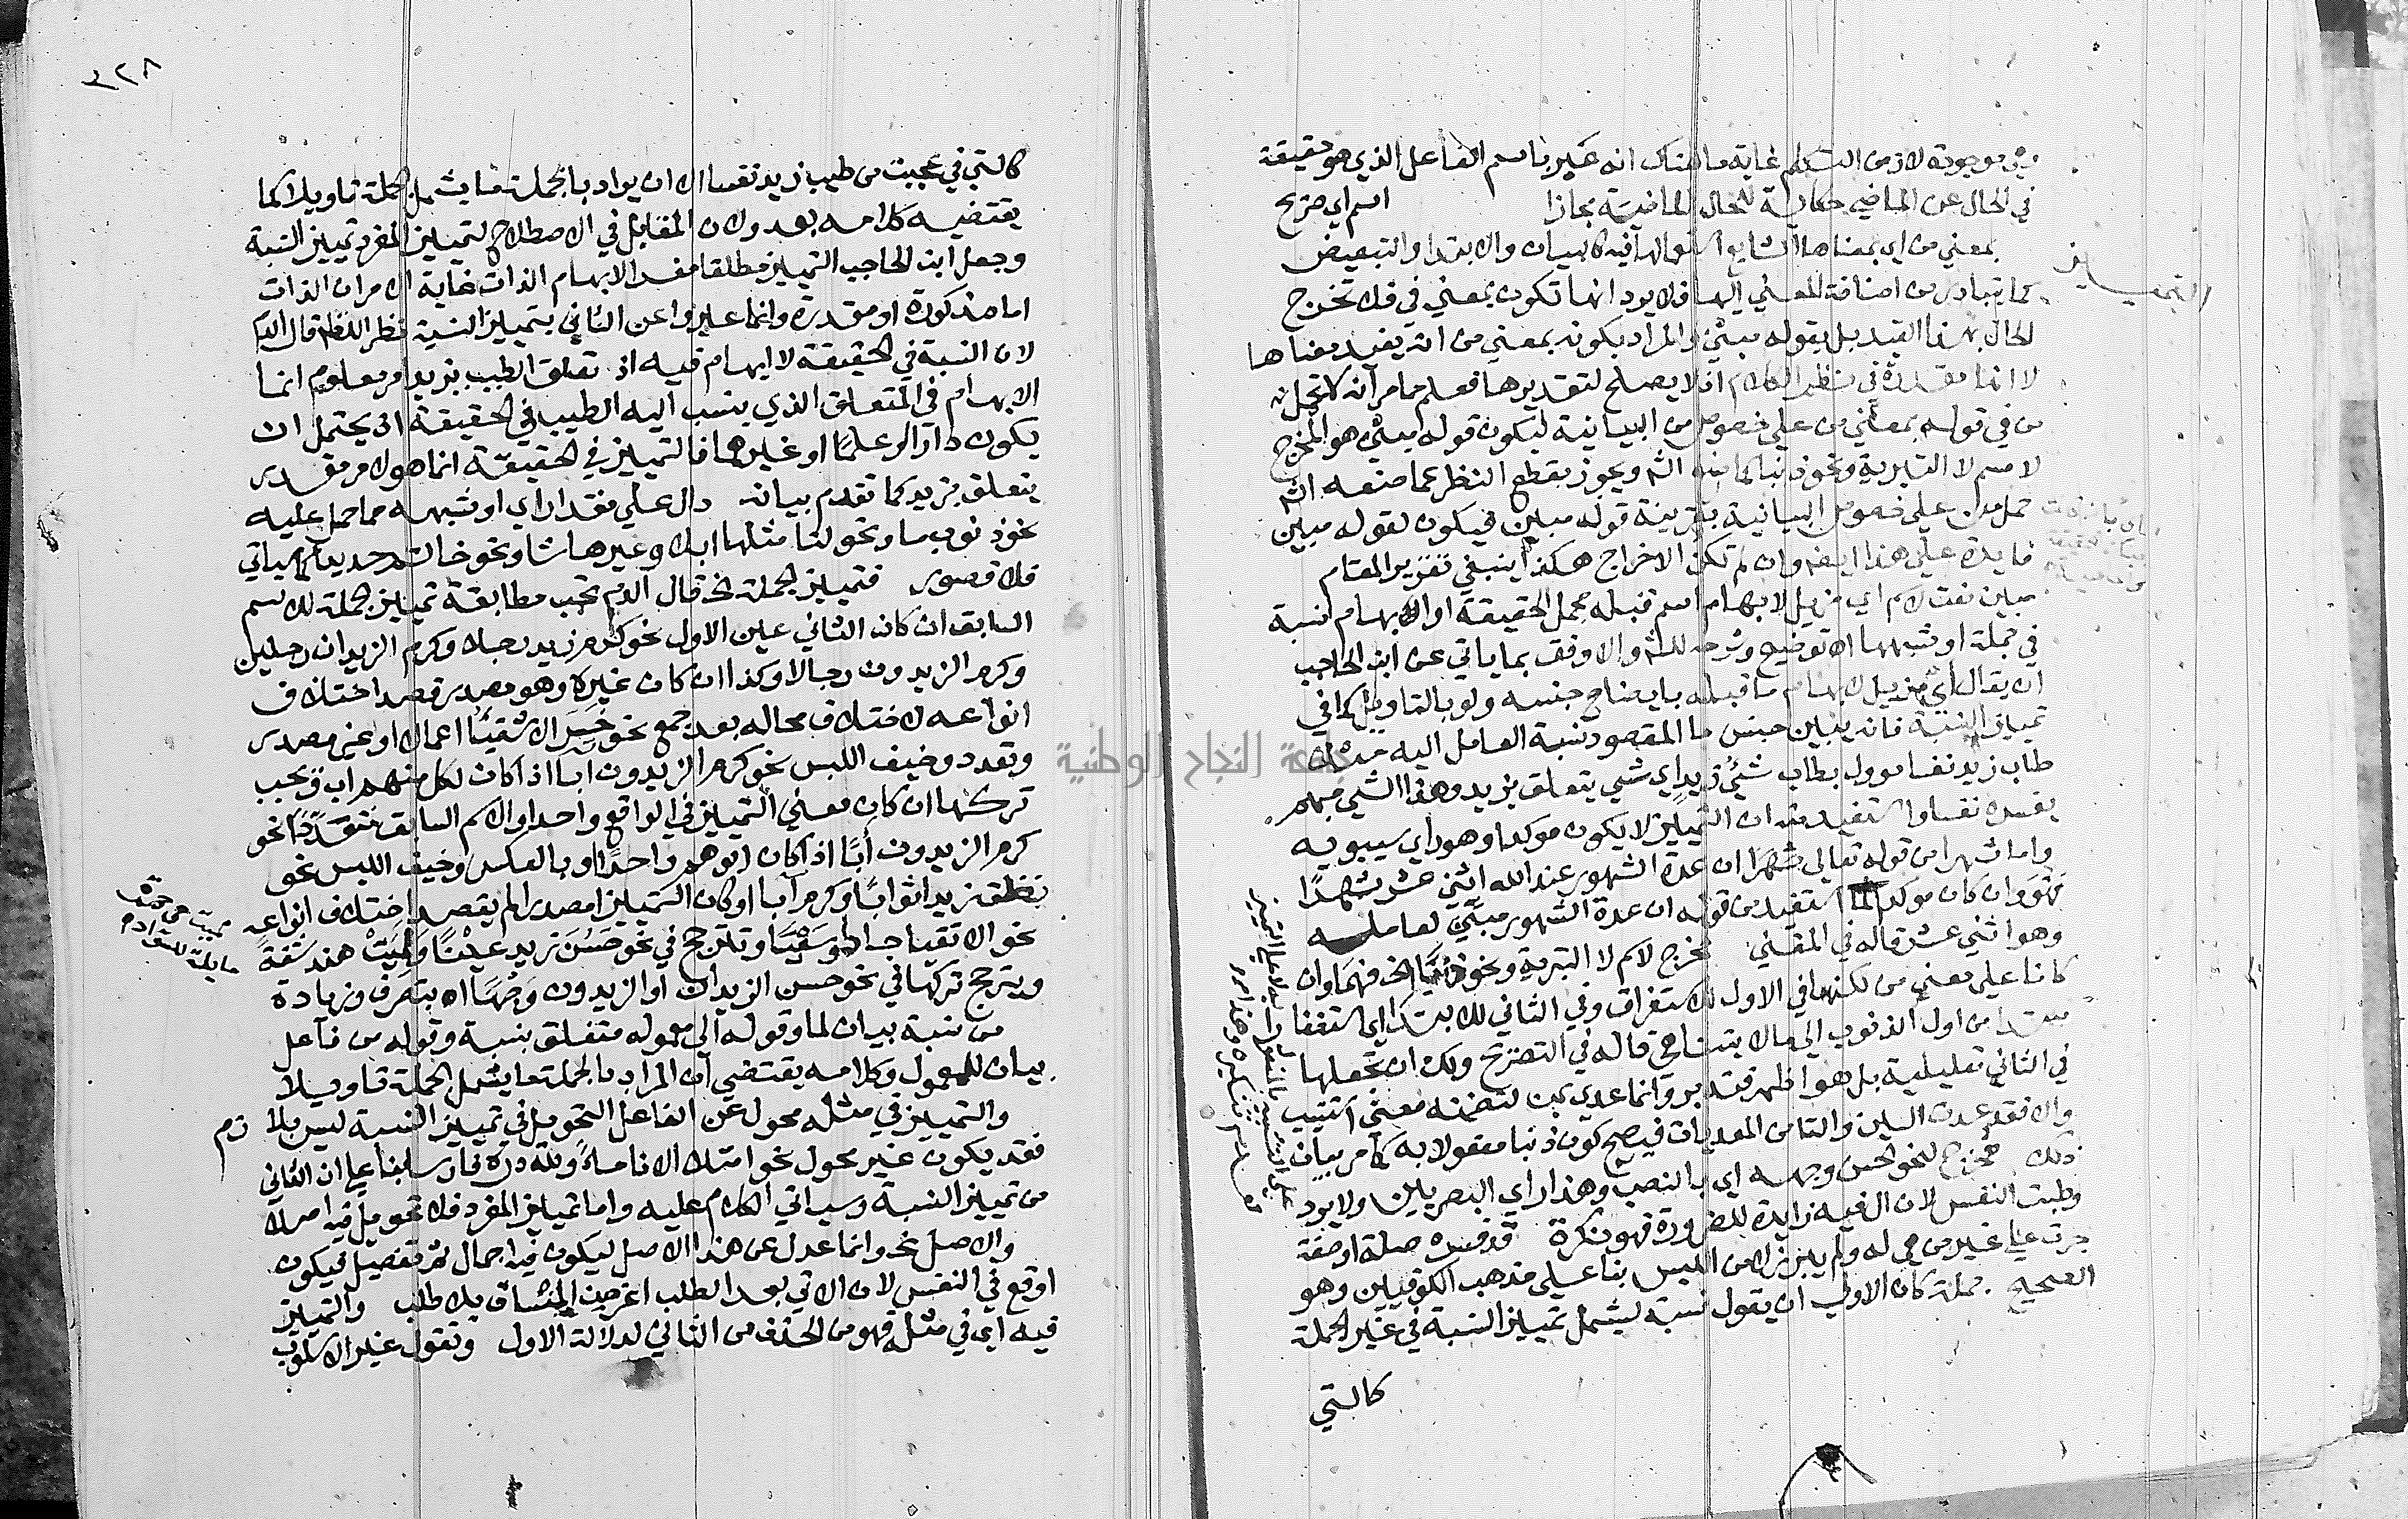 وهي موجودة لا زمن التكلم غاية ما هناك انه عبر باسم الفاعل الذي هو حقيقة
في الحال عن الماضي حكاية للحال الماضية مجازا اسم اي صريح
بمعني من اي بمعناها الشايع استعمالها فيه كالبيان والابتدا والتبعيض
كما يتبادر من اضافة المعني اليها فلا يرد انها تكون بمعني في فلا تخرج
الحال بهذا القيد بل بقوله مبين والمراد بكونه بمعني من انه يفيد معناها
لا انها مقدرة في نظم الكلام اذ لا يصلح لتقديرها فعلم مما مر انه لا تحمل
من في قوله بمعني من علي خصوص من البيانية ليكون قوله مبين هو المخرج
لاسم لا التبرية ونحو ذنبا كما صنع الش ويجوز بقطع النظر عما صنعه الش
حمل من علي خصوص البيانية بقرينة قوله مبين فيكون لقوله مبين
فايدة علي هذا ايضا وان لم تكن الاخراج هكذا ينبغي تقرير المقام
مبين نعت لاسم اي مزيل لابهام اسم قبله مجمل الحقيقة او لابهام نسبة
في جملة او شبهها اه توضيح وشرحه للش والاوفق بما ياتي عن ابن الحاجب
ان يقال اي مزيل لابهام ما قبله بايضاح جنسه ولو بالتاويل كما في
تمييز النسبة فانه يبين جنس ما المقصود نسبة العامل اليه فمثلا
طاب زيد نفسا موول بطاب شيئ زيد اي شيي يتعلق بزيد وهذا الشيي مبهم
يفسره نفسا واستفيد منه ان التمييز لا يكون موكدا وهو راي سيبويه
واما شهرا من قوله تعالي ان عدة الشهور عند الله اثني عشر شهرا
فهو وان كان موكدا لما استفيد من قوله ان عدة الشهور مبين لعامله
وهو اثني عشر قاله في المغني مخرج لاسم لا التبرية ونحو ذنبا الخ فهما وان
كانا علي معني من لكنها في الاول للاستغراق وفي الثاني للابتدا اي استغفارا
مبتدا من اول الذنوب الي ما لا يتناهي قاله في التصريح ولك ان تجعلها
في الثاني تعليلية بل هو اظهر فتدبر وانما عدي بمن لتضمنه معني استتيب
والا فقد عدت السين والتا من المعديات فيصح كون ذنبا مفعولا به كما مر بيان
ذلك مخرج لنحو الحسن وجهه اي بالنصب وهذا راي البصريين ولا يرد
وطبت النفس لان ال فيه زايدة للضرورة فهو نكرة قد فسره صلة او صفة
جرت علي غير من هي له ولم يبرز لامن اللبس بنا علي مذهب الكوفيين وهو
الصحيح جملة كان الاولي ان يقول نسبة ليشمل تمييز النسبة في غير الجملة
كالتي
التمييز
٣٢٨
كالتي في عجبت من طيب زيد نفسا الا ان يراد بالجملة ما يشمل الجملة تاويلا كما
يقتضيه كلامه بعد ولان المقابل في الاصطلاح لتمييز المفرد تمييز النسبة
وجعل ابن الحاجب التمييز مطلقا مفسرا لابهام الذات غاية الامر ان الذات
اما مذكورة او مقدرة وانما عبروا عن الثاني بتمييز النسبة نظرا للظاهر قال
لان النسبة في الحقيقة لا ابهام فيه اذ تعلق الطيب بزيد امر معلوم انما
الابهام في المتعلق الذي ينسب اليه الطيب في الحقيقة اذ يحتمل ان
يكون دارا او علما او غيرهما فالتمييز في الحقيقة انما هو لامر مقدر
يتعلق بزيد كما تقدم بيانه دال علي مقدار اي او شبهه مما حمل عليه
نحو ذنوب ما ونحو لنا مثلها ابلا وغيرها شا ونحو خاتم حديدا كما سياتي
فلا قصور فتمييز الجملة الخ قال الدم تجب مطابقة تمييز الجملة للاسم
السابق ان كان الثاني عين الاول نحو كرم زيد رجلا وكرم الزيدان رجلين
وكرم الزيدون رجالا وكذا ان كان غيره وهو مصدر قصد اختلاف
انواعه لاختلاف محاله بعد جمع نحو خسر الاشقيا اعمالا او غير مصدر
وتعدد وخيف اللبس نحو كرم الزيدون ابا اذا كان لكل منهم اب ويجب
تركها ان كان معني التمييز في الواقع واحدا والاسم السابق متعددا نحو
كرم الزيدون ابا اذا كان ابوهم واحدا او بالعكس وخيف اللبس نحو
نظف زيد اثوابا وكرم آبا او كان التمييز مصدرا لم يقصد اختلاف انواعه
نحو الاتقيا جادوا سعيا وتترجح في نحو حسن زيد عينا ولميت هند شفة
ويترجح تركها في نحو حسن الزيدان او الزيدون وجها اه بتصرف وزيادة
من نسبة بيان لما وقوله الي معموله متعلق بنسبة وقوله من فاعل
بيان للمعمول وكلامه يقتضي ان المراد بالجملة ما يشمل الجملة تاويلا
والتمييز في مثله محول عن الفاعل التحويل في تمييز النسبة ليس بلازم
فقد يكون غير محول نحو امتلا الانا ماء ولله دره فارسا بنا علي ان الثاني
من تمييز النسبة وسياتي الكلام عليه واما تمييز المفرد فلا تحويل فيه اصلا
والاصل الخ وانما عدل عن هذا الاصل ليكون فيه اجمال ثم تفصيل فيكون
اوقع في النفس لان الاتي بعد الطلب اعز من المنساق بلا طلب والتمييز
فيه اي في مثله فهو من الحذف من الثاني لدلالة الاول وتقول غير الاسلوب